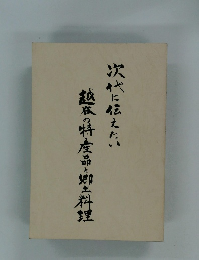 次代に伝えたい
越後の特産品と郷土料理